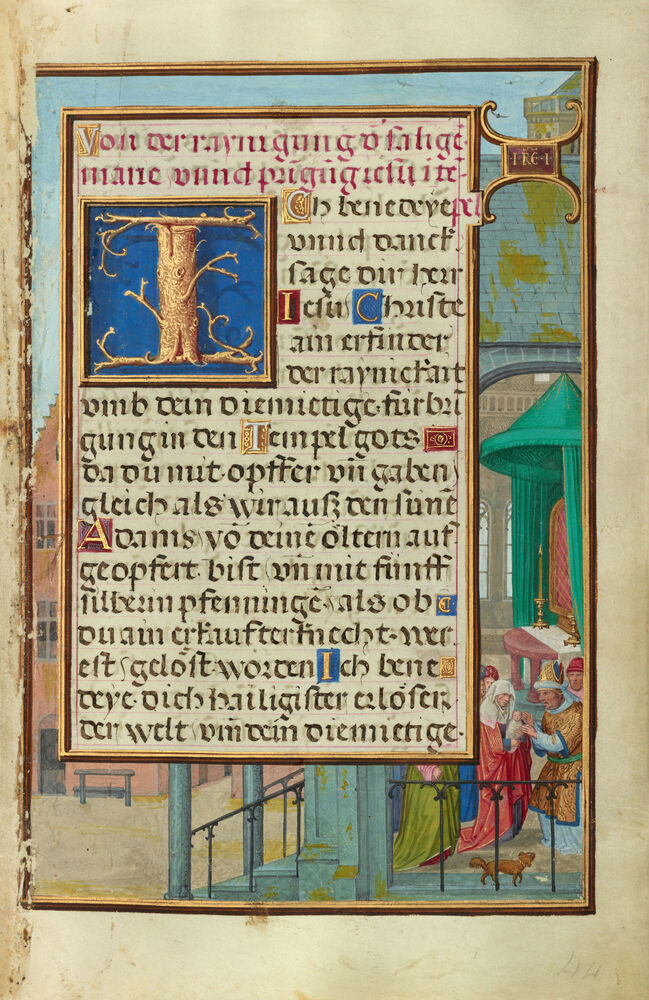 Von der raynigung d̄ salige
marie vnnd prīgūg iesu ī tē
pel
Ich benedeye
vnnd danck
sage dir herr
Iesu Christe
ain erfinder
der raynickait
vmb dein diemietige fürbrī
gung in den Tempel gots
da du mit opffer vn̄ gaben
gleich als wir auß den sunē
Adams vō deinē öltern auf
geopfert bist vn̄ mit fünff
silberin pfenningē als ob
du ain erkaufter knecht wer
est gelöst worden Ich bene
deye dich hailigister erlöser
der welt vm̄ dein diemietige
44